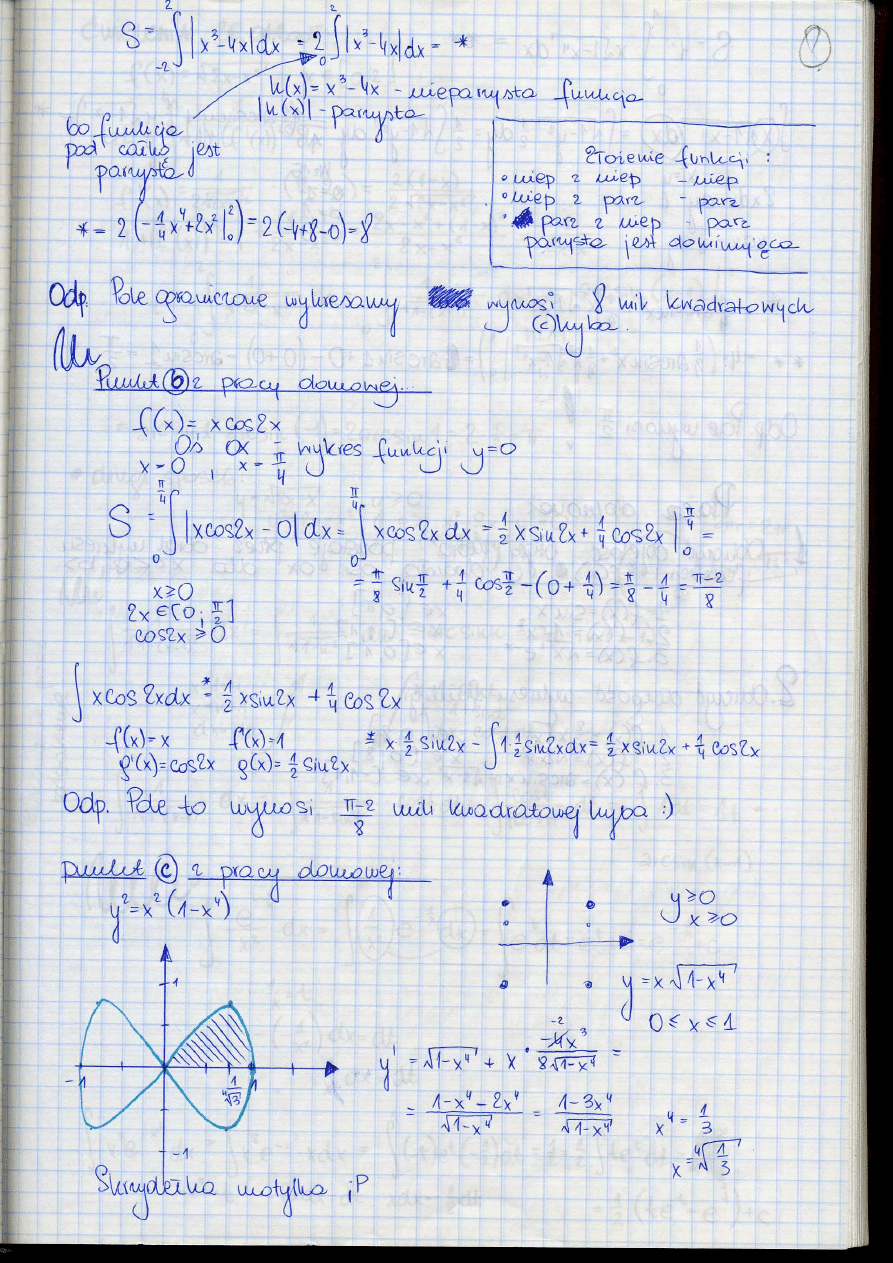 S = ∫_{-2}^{2} |x³-4x| dx = 2∫_{0}^{2} |x³-4x| dx = *
k(x) = x³-4x - nieparzysta funkcja
|k(x)| - parzysta
bo funkcja
pod całką jest
parzysta
Złożenie funkcji :
• niep z niep - niep
• niep z parz - parz
• parz z niep - parz
parzysta jest dominująca
* = 2 (-1/4 x⁴ + 2x² |₀²) = 2(-4+8-0) = 8
Odp. Pole ograniczone wykresamy wynosi 8 mil kwadratowych
(c)hyba.
Punkt (b) z pracy domowej...
f(x) = x cos2x
Oś OX - wykres funkcji y=0
x=0 , x = π/4
S = ∫_{0}^{π/4} |xcos2x - 0| dx = ∫_{0}^{π/4} xcos2x dx = 1/2 x sin2x + 1/4 cos2x |₀^{π/4} =
= π/8 sin π/2 + 1/4 cos π/2 - (0 + 1/4) = π/8 - 1/4 = π-2/8
x ≥ 0
2x ∈ [0 ; π/2]
cos2x ≥ 0
∫ xcos2xdx *= 1/2 xsin2x + 1/4 cos2x
f(x) = x f'(x) = 1
g'(x) = cos2x g(x) = 1/2 sin2x
*= x 1/2 sin2x - ∫1·1/2 sin2xdx = 1/2 xsin2x + 1/4 cos2x
Odp. Pole to wynosi π-2/8 mili kwadratowej hyba :)
punkt (c) z pracy domowej:
y² = x² (1-x⁴)
y ≥ 0
x ≥ 0
y = x √(1-x⁴)
0 ≤ x ≤ 1
1
-1
1/⁴√3
1
-1
y' = √(1-x⁴) + x · -2 -4x³/8√(1-x⁴) =
= 1-x⁴-2x⁴/√(1-x⁴) = 1-3x⁴/√(1-x⁴)
x⁴ = 1/3
x = ⁴√(1/3)
Skrzydełka motylka ;P